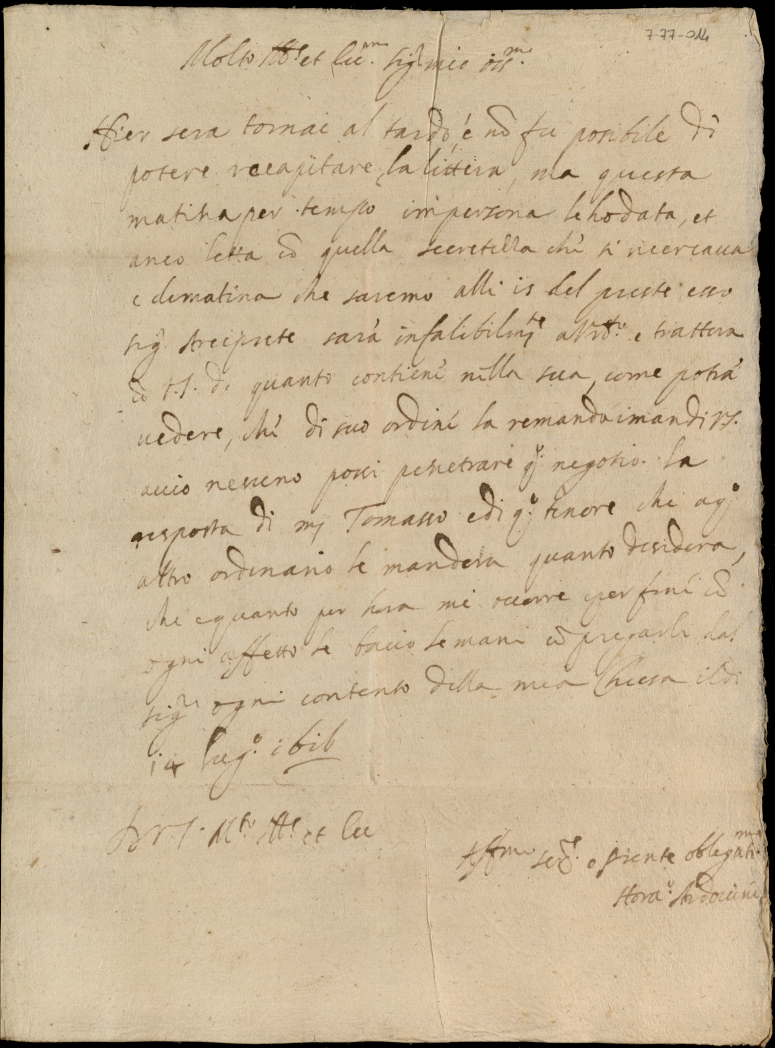 7-77-014
Molto Ill.e et Ecc.mo Sig.r mio oss.mo
Hier sera tornai al tardo, é nõ fu posibile di
potere recapitare la littera, ma questa
matina per tempo in persona le ho data, et
anco letta cõ quella secretezza ché si ricercava
e dimatina che saremo alli 15 del preste esso
sig.r Arciprete sará infalibilm.te e trattera
cõ V.S. di quanto contiené nella sua, come potrá
vedere, ché di suo ordiné la remando
accio nessuno possi penetrare q.o negotio. La
risposta di m. Tomasso e di q.o tenore che
altro ordinario le mandera quanto desidera,
che e quanto per hora mi ocorre e per finé cõ
ogni affetto le bacio le mani cõ pregarle dal
sig.re ogni contento della mia Chiesa il dì
14 lug.o 1616
Di V.S. M.to Ill.e et Ecc
Aff.mo ser.re e parente oblegati.mo
Hora.o